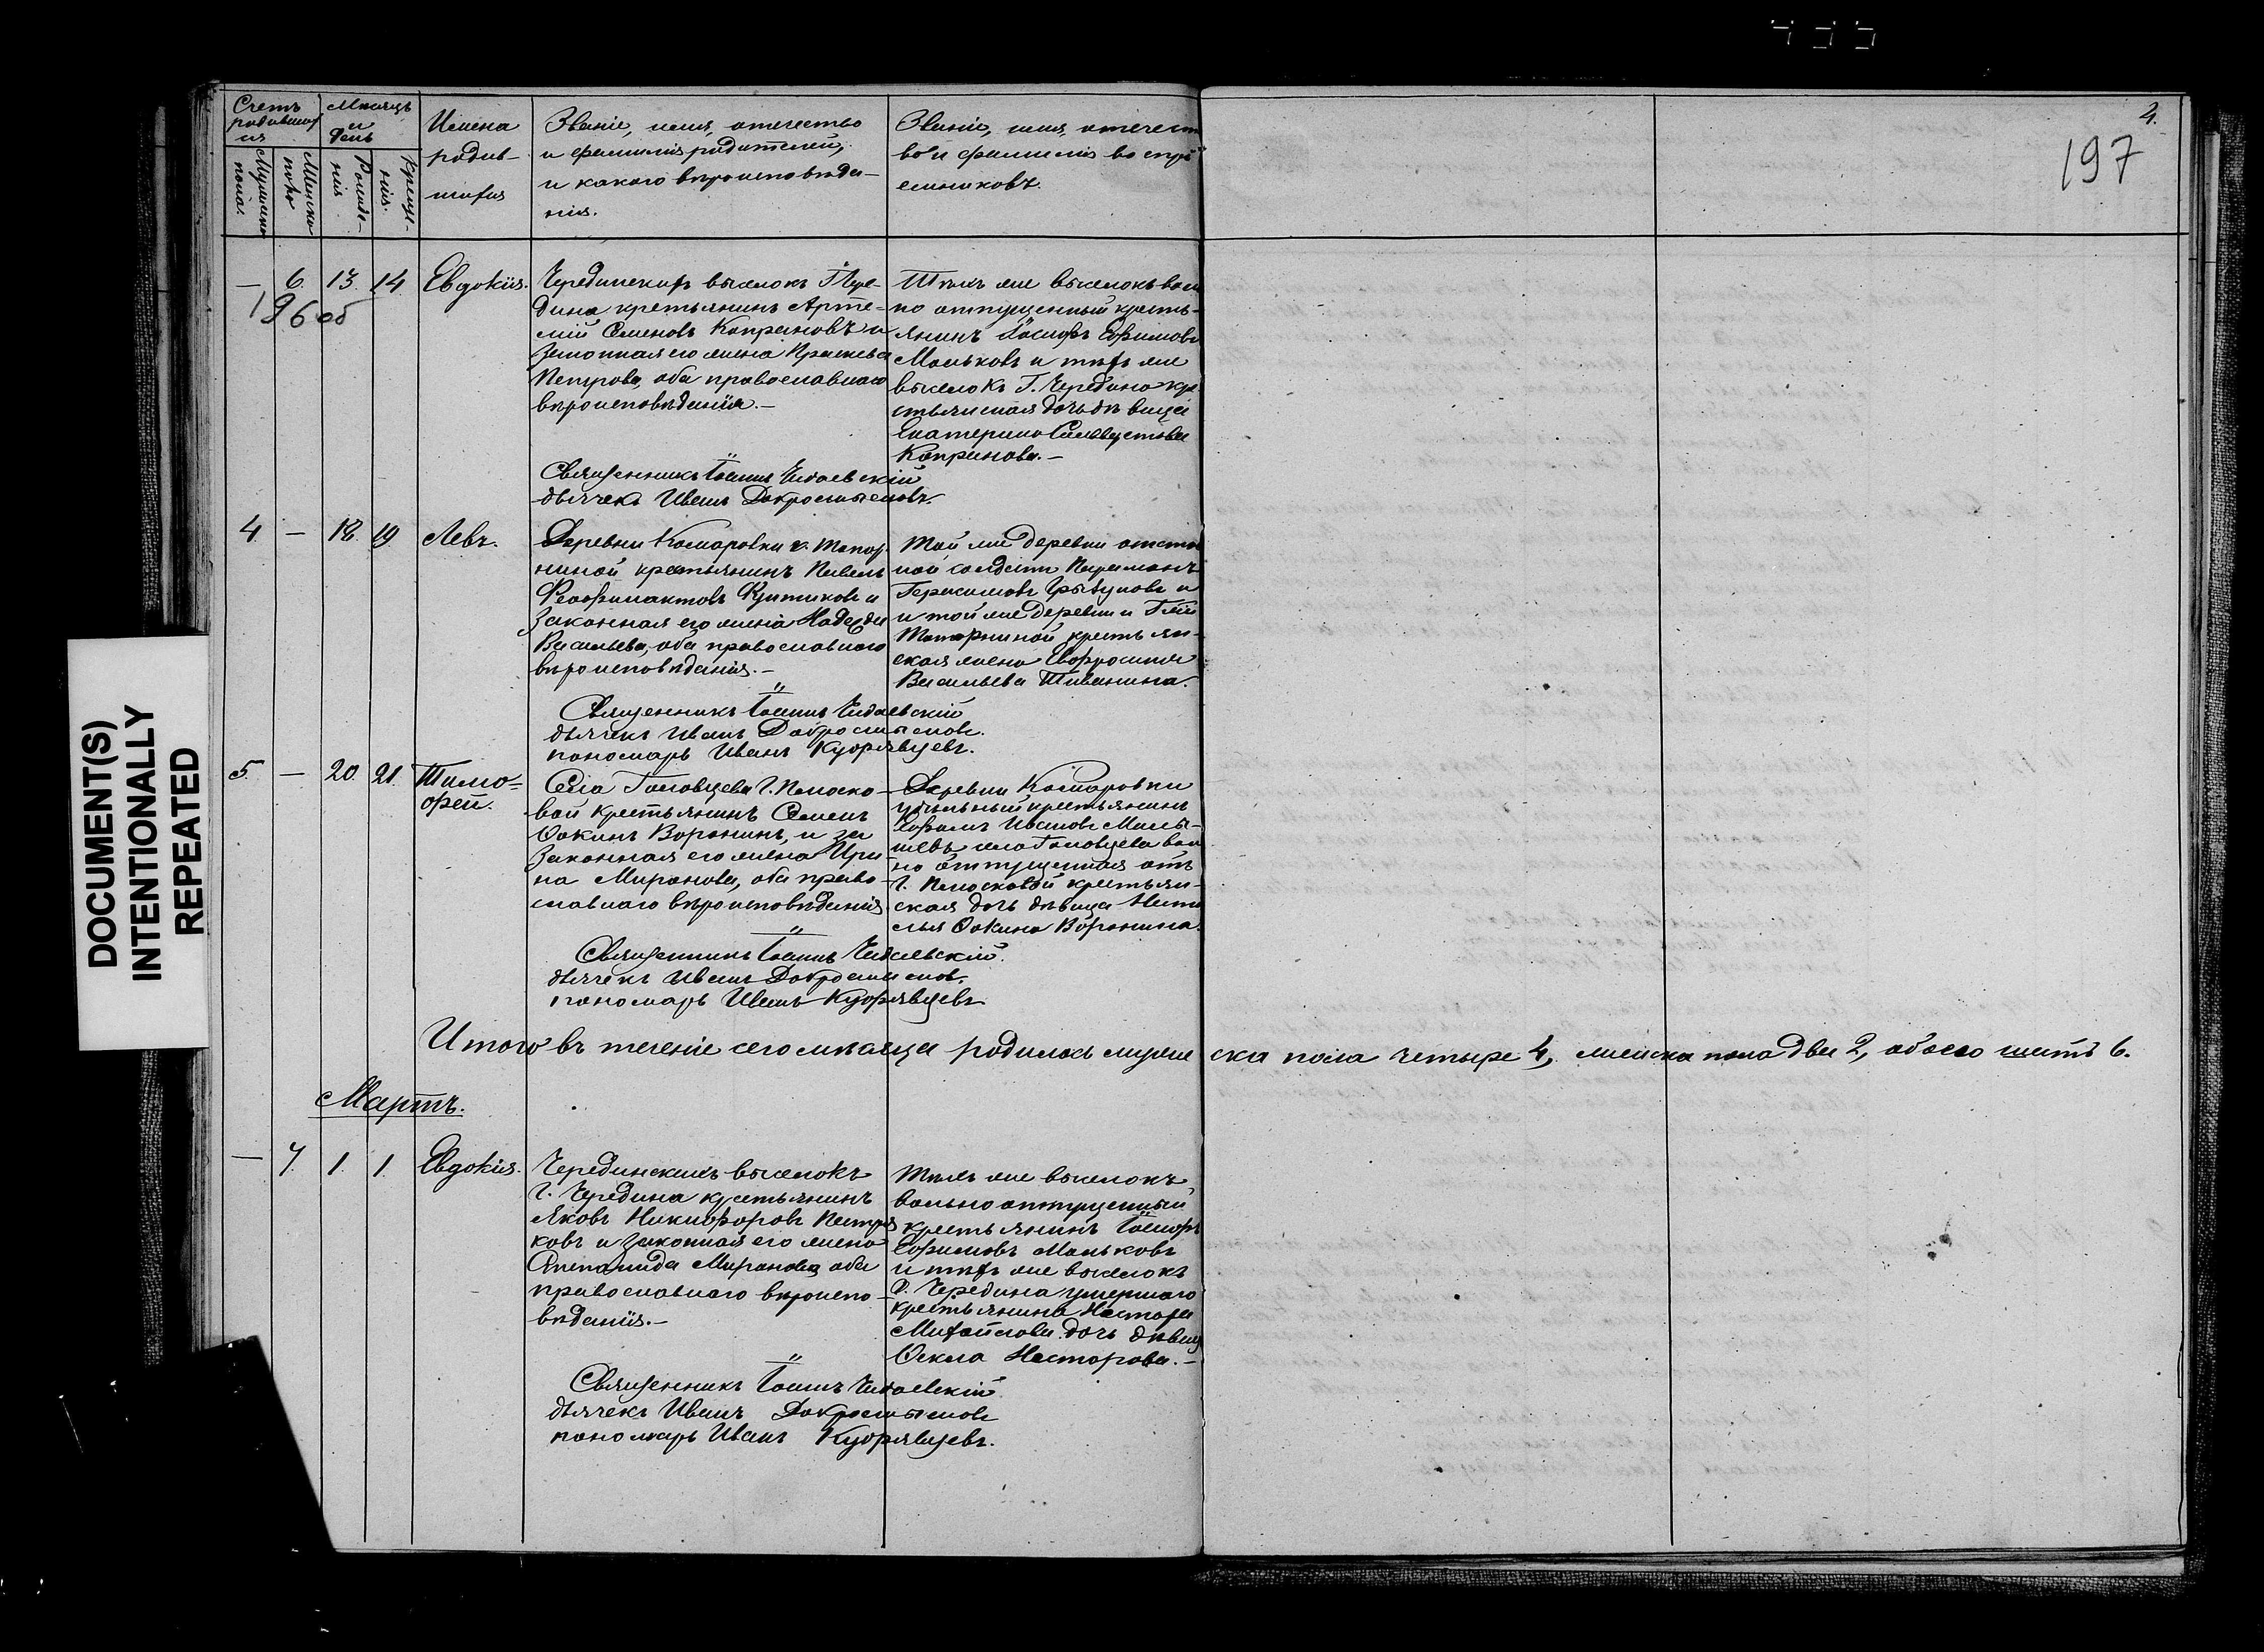 4.
197
DOCUMENT(S)
INTENTIONALLY
REPEATED
Счетъ
родивших
ся
Мужеска
пола.
Женска
пола
Мѣсяцъ
и
день
Рожде-
нія
Креще-
нія.
Имена
родив-
шихся
Званіе, имя, отечество
и фамилія родителей,
и какого вѣроисповѣда-
нія.
Званіе, имя, отечест
во и фамилія воспрі
емниковъ.
— 6. 13. 14 Евдокія.
196 об
Чердинскихъ выселокъ Г. Чере-
дина крестьянинъ Арте-
мій Семеновъ Капрановъ и
законная его жена Прасковья
Петрова, оба православнаго
вѣроисповѣданія.—
Тѣхъ же выселокъ воль
но отпущенный кресть-
янинъ Іосифъ Ефимовъ
Маньковъ и тѣхъ же
выселокъ Г. Чередина кре
стьянская дочь дѣвица
Екатерина
Капранова.—
Священникъ Іоаннъ
дьячекъ Иванъ Добросмысловъ.
4. — 18. 19 Левъ.
Деревни Комаровки г. Топор-
ниной крестьянинъ Павелъ
Феофилактовъ и
законная его жена Надежда
Васильева, оба православнаго
вѣроисповѣданія.—
Той же деревни отстав
ной солдатъ
Герасимовъ и
и той же деревни Г-жи
Топорниной крестьян-
ская жена Евфросинія
Васильева
Священникъ Іоаннъ
дьячекъ Иванъ Добросмысловъ.
пономарь Иванъ Кудрявцевъ.
5. — 20. 21. Тимо-
фей.
Села Головцева Г. Плоско-
вой крестьянинъ Семенъ
Ѳокинъ Воронинъ, и за
законная его жена Ири-
на Миронова, оба право-
славнаго вѣроисповѣданія.
Деревни Комаровки
удѣльный крестьянинъ
Ефимъ Ивановъ Малы-
шевъ села Головцева воль
но отпущенная отъ
Г. Плосковой крестьян-
ская дочь дѣвица Ната
лья Ѳокина Воронина.
Священникъ Іоаннъ
дьячекъ Иванъ Добросмысловъ.
пономарь Иванъ Кудрявцевъ
Итого въ теченіе сего мѣсяца родилось мужеска пола четыре 4, женска пола два 2, обоего шесть 6.
Мартъ.
— 7. 1. 1. Евдокія.
Чердинскихъ выселокъ
Г. Чередина крестьянинъ
Яковъ Никифоровъ
ковъ и законная его жена
Степанида Миронова, оба
православнаго вѣроиспо-
вѣданія.—
Тѣхъ же выселокъ
вольноотпущенный
крестьянинъ Іосифъ
Ефимовъ Маньковъ
и тѣхъ же выселокъ
Г. Чередина умершаго
крестьянина Нестора
Михайлова дочь дѣвица
Ѳекла Несторова.—
Священникъ Іоаннъ
дьячекъ Иванъ Добросмысловъ
пономарь Иванъ Кудрявцевъ.